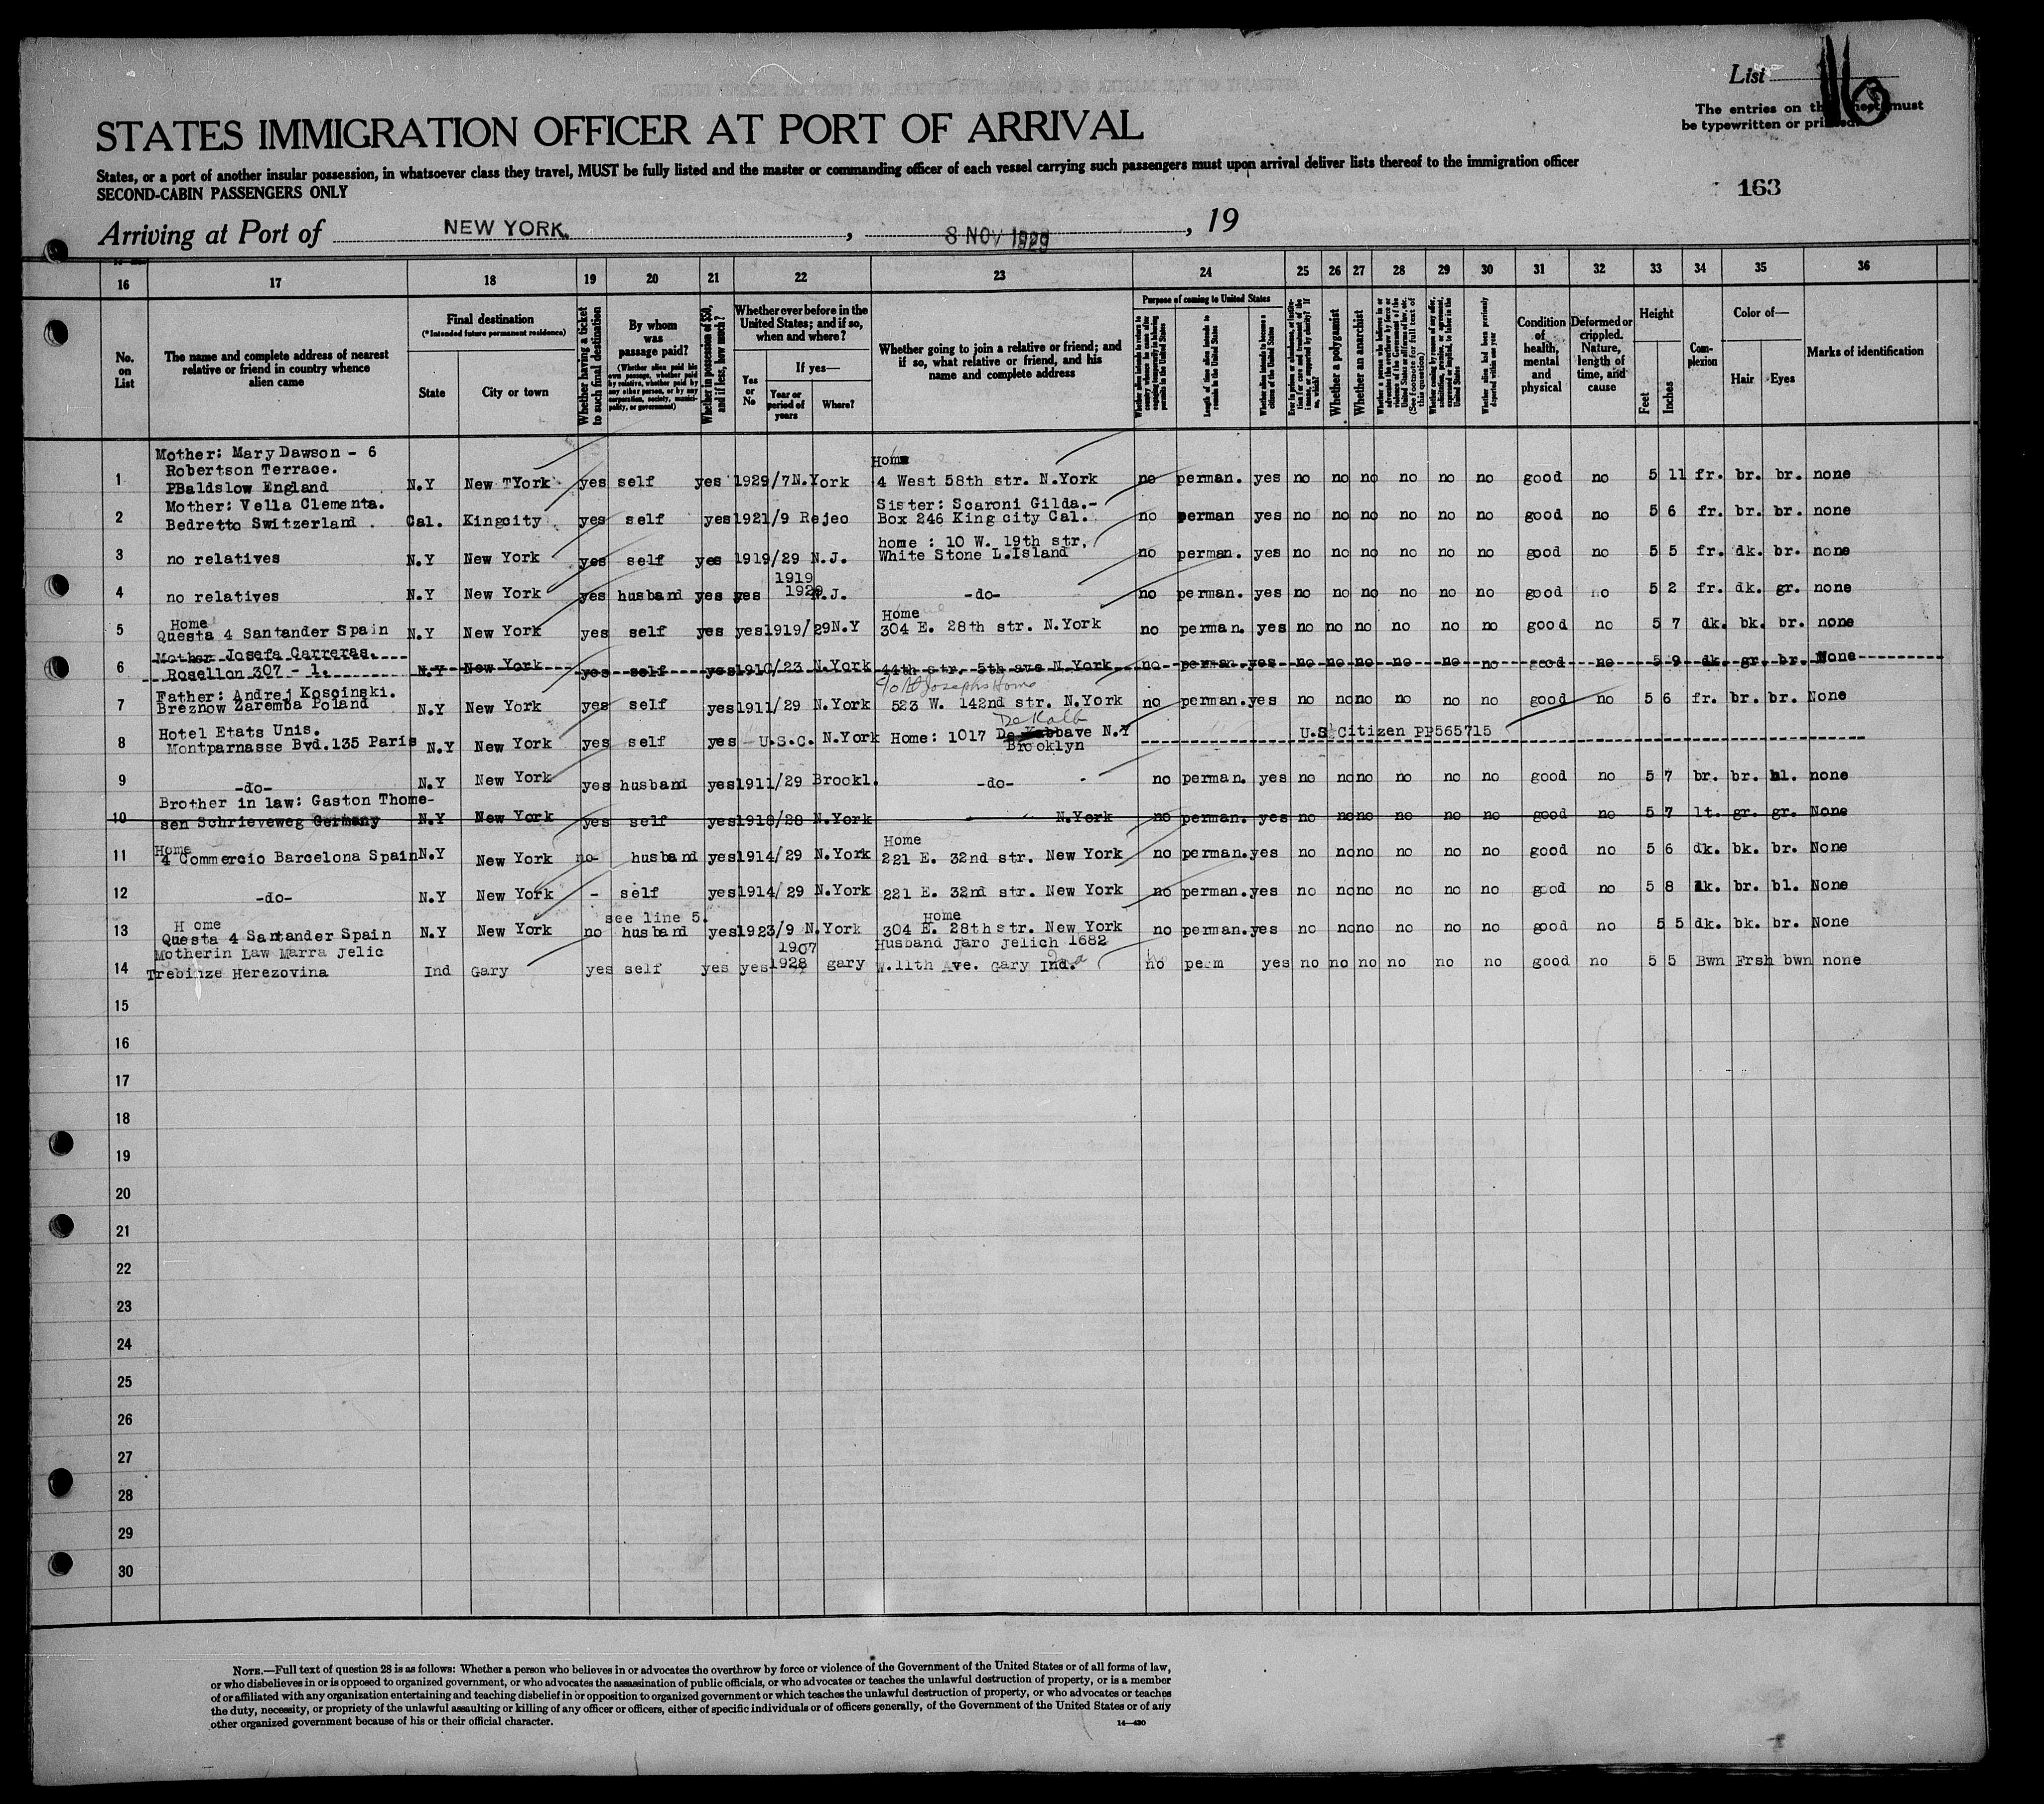 List
The entries on this sheet must
be typewritten or printed.
STATES IMMIGRATION OFFICER AT PORT OF ARRIVAL
States, or a port of another insular possession, in whatsoever class they travel, MUST be fully listed and the master or commanding officer of each vessel carrying such passengers must upon arrival deliver lists thereof to the immigration officer
SECOND-CABIN PASSENGERS ONLY
163
Arriving at Port of NEW YORK. , 8 NOV 1929 , 19
16 17 18 19 20 21 22 23 24 25 26 27 28 29 30 31 32 33 34 35 36
No. on List
The name and complete address of nearest relative or friend in country whence alien came
Final destination
(*Intended future permanent residence)
State
City or town
Whether having a ticket to such final destination
By whom was passage paid?
(Whether alien paid his own passage, whether paid by relative, whether paid by any other person, or by any corporation, society, municipality, or government)
Whether in possession of $50, and if less, how much?
Whether ever before in the United States; and if so, when and where?
Yes or No
If yes—
Year or period of years
Where?
Whether going to join a relative or friend; and if so, what relative or friend, and his name and complete address
Purpose of coming to United States
Length of time alien intends to remain in the United States
Whether alien intends to become a citizen of the United States
Whether a polygamist
Whether an anarchist
Whether alien had been previously deported within one year
Condition of health, mental and physical
Deformed or crippled. Nature, length of time, and cause
Height
Feet
Inches
Complexion
Color of—
Hair
Eyes
Marks of identification
Mother: Mary Dawson - 6
Robertson Terrace. Home
1 PBaldslow England N.Y New TYork yes self yes 1929/7 N.York 4 West 58th str. N.York no perman. yes no no no no no no good no 5 11 fr. br. br. none
Mother: Vella Clementa. Sister: Scaroni Gilda.-
2 Bedretto Switzerland . Cal. Kingcity yes self yes 1921/9 Rejeo Box 246 King city Cal. no perman yes no no no no no no good no 5 6 fr. br. br. none
home : 10 W. 19th str,
3 no relatives N.Y New York yes self yes 1919/29 N.J. White Stone L.Island no perman. yes no no no no no no good no 5 5 fr. dk. br. none
1919
4 no relatives N.Y New York yes husband yes yes 1929 N.J. -do- no perman. yes no no no no no no good no 5 2 fr. dk. gr. none
Home Home
5 Questa 4 Santander Spain N.Y New York yes self yes yes 1919/29 N.Y 304 E. 28th str. N.York no perman. yes no no no no no no good no 5 7 dk. bk. br. none
Mother Josefa Carreras.
6 Rosellon 307 - 1. N.Y New York yes self yes 1910/23 N.York 44th str. 5th ave N.York no perman yes no no no no no no good no 5 9 dk. gr. br. None
c/o St Josephs Home
Father: Andrej Koscinski.
7 Breznow Zaremba Poland N.Y New York yes self yes 1911/29 N.York 523 W. 142nd str. N.York no perman. yes no no no no no no good no 5 6 fr. br. br. None
Hotel Etats Unis. DeKalb
8 Montparnasse Bvd.135 Paris N.Y New York yes self yes - U.S.C. N.York Home: 1017 ave N.Y U.S Citizen PP565715
Brooklyn
9 -do- N.Y New York yes husband yes 1911/29 Brookl. -do- no perman. yes no no no no no no good no 5 7 br. br. bl. none
Brother in law: Gaston Thome-
10 sen Schrieveweg Germany N.Y New York yes self yes 1910/28 N.York N.York no perman. yes no no no no no no good no 5 7 lt. gr. gr. None
Home Home
11 4 Commercio Barcelona Spain N.Y New York no- husband yes 1914/29 N.York 221 E. 32nd str. New York no perman. yes no no no no no no good no 5 6 dk. bk. br. None
12 -do- N.Y New York - self yes 1914/29 N.York 221 E. 32nd str. New York no perman. yes no no no no no no good no 5 8 br. bl. None
Home see line 5. Home
13 Questa 4 Santander Spain N.Y New York no husband yes 1923/9 N.York 304 E. 28thstr. New York no perman. yes no no no no no no good no 5 5 dk. bk. br. None
Motherin Law Marra Jelic 1907 Husband Jaro Jelich 1682
14 Trebinze Herezovina Ind Gary yes self yes yes 1928 gary W.11th Ave. Gary Ind. no perm yes no no no no no no good no 5 5 Bwn Frsh bwn none
15
16
17
18
19
20
21
22
23
24
25
26
27
28
29
30
NOTE.—Full text of question 28 is as follows: Whether a person who believes in or advocates the overthrow by force or violence of the Government of the United States or of all forms of law,
or who disbelieves in or is opposed to organized government, or who advocates the assassination of public officials, or who advocates or teaches the unlawful destruction of property, or is a member
of or affiliated with any organization entertaining and teaching disbelief in or opposition to organized government or which teaches the unlawful destruction of property, or who advocates or teaches
the duty, necessity, or propriety of the unlawful assaulting or killing of any officer or officers, either of specific individuals or of officers generally, of the Government of the United States or of any
other organized government because of his or their official character.
14—430